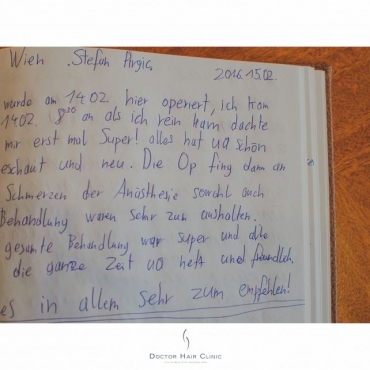 Wien Stefan Argic
2016.15.02.
wurde am 14.02. hier operiert, ich kam
14.02. 8³⁰ an als ich rein kam dachte
mir erst mal Super! alles hat ua schön
eschaut und neu. Die Op fing dann an
Schmerzen der Anästhesie sowohl auch
Behandlung waren sehr zum aushalten.
gesamte Behandlung war super und alle
die ganze Zeit ua nett und freundlich.
es in allem sehr zum empfehlen!
DOCTOR HAIR CLINIC